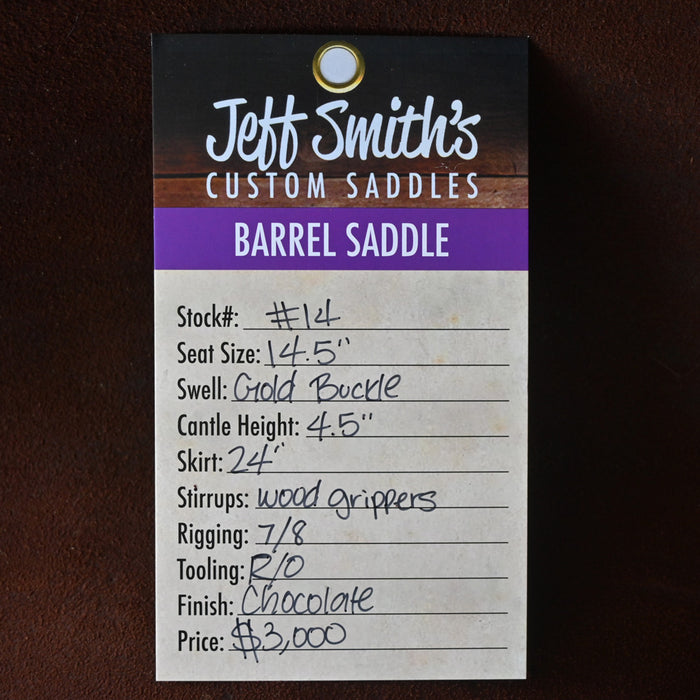 Jeff Smith's
CUSTOM SADDLES
BARREL SADDLE
Stock#: #14
Seat Size: 14.5"
Swell: Gold Buckle
Cantle Height: 4.5"
Skirt: 24"
Stirrups: wood grippers
Rigging: 7/8
Tooling: R/O
Finish: Chocolate
Price: $3,000